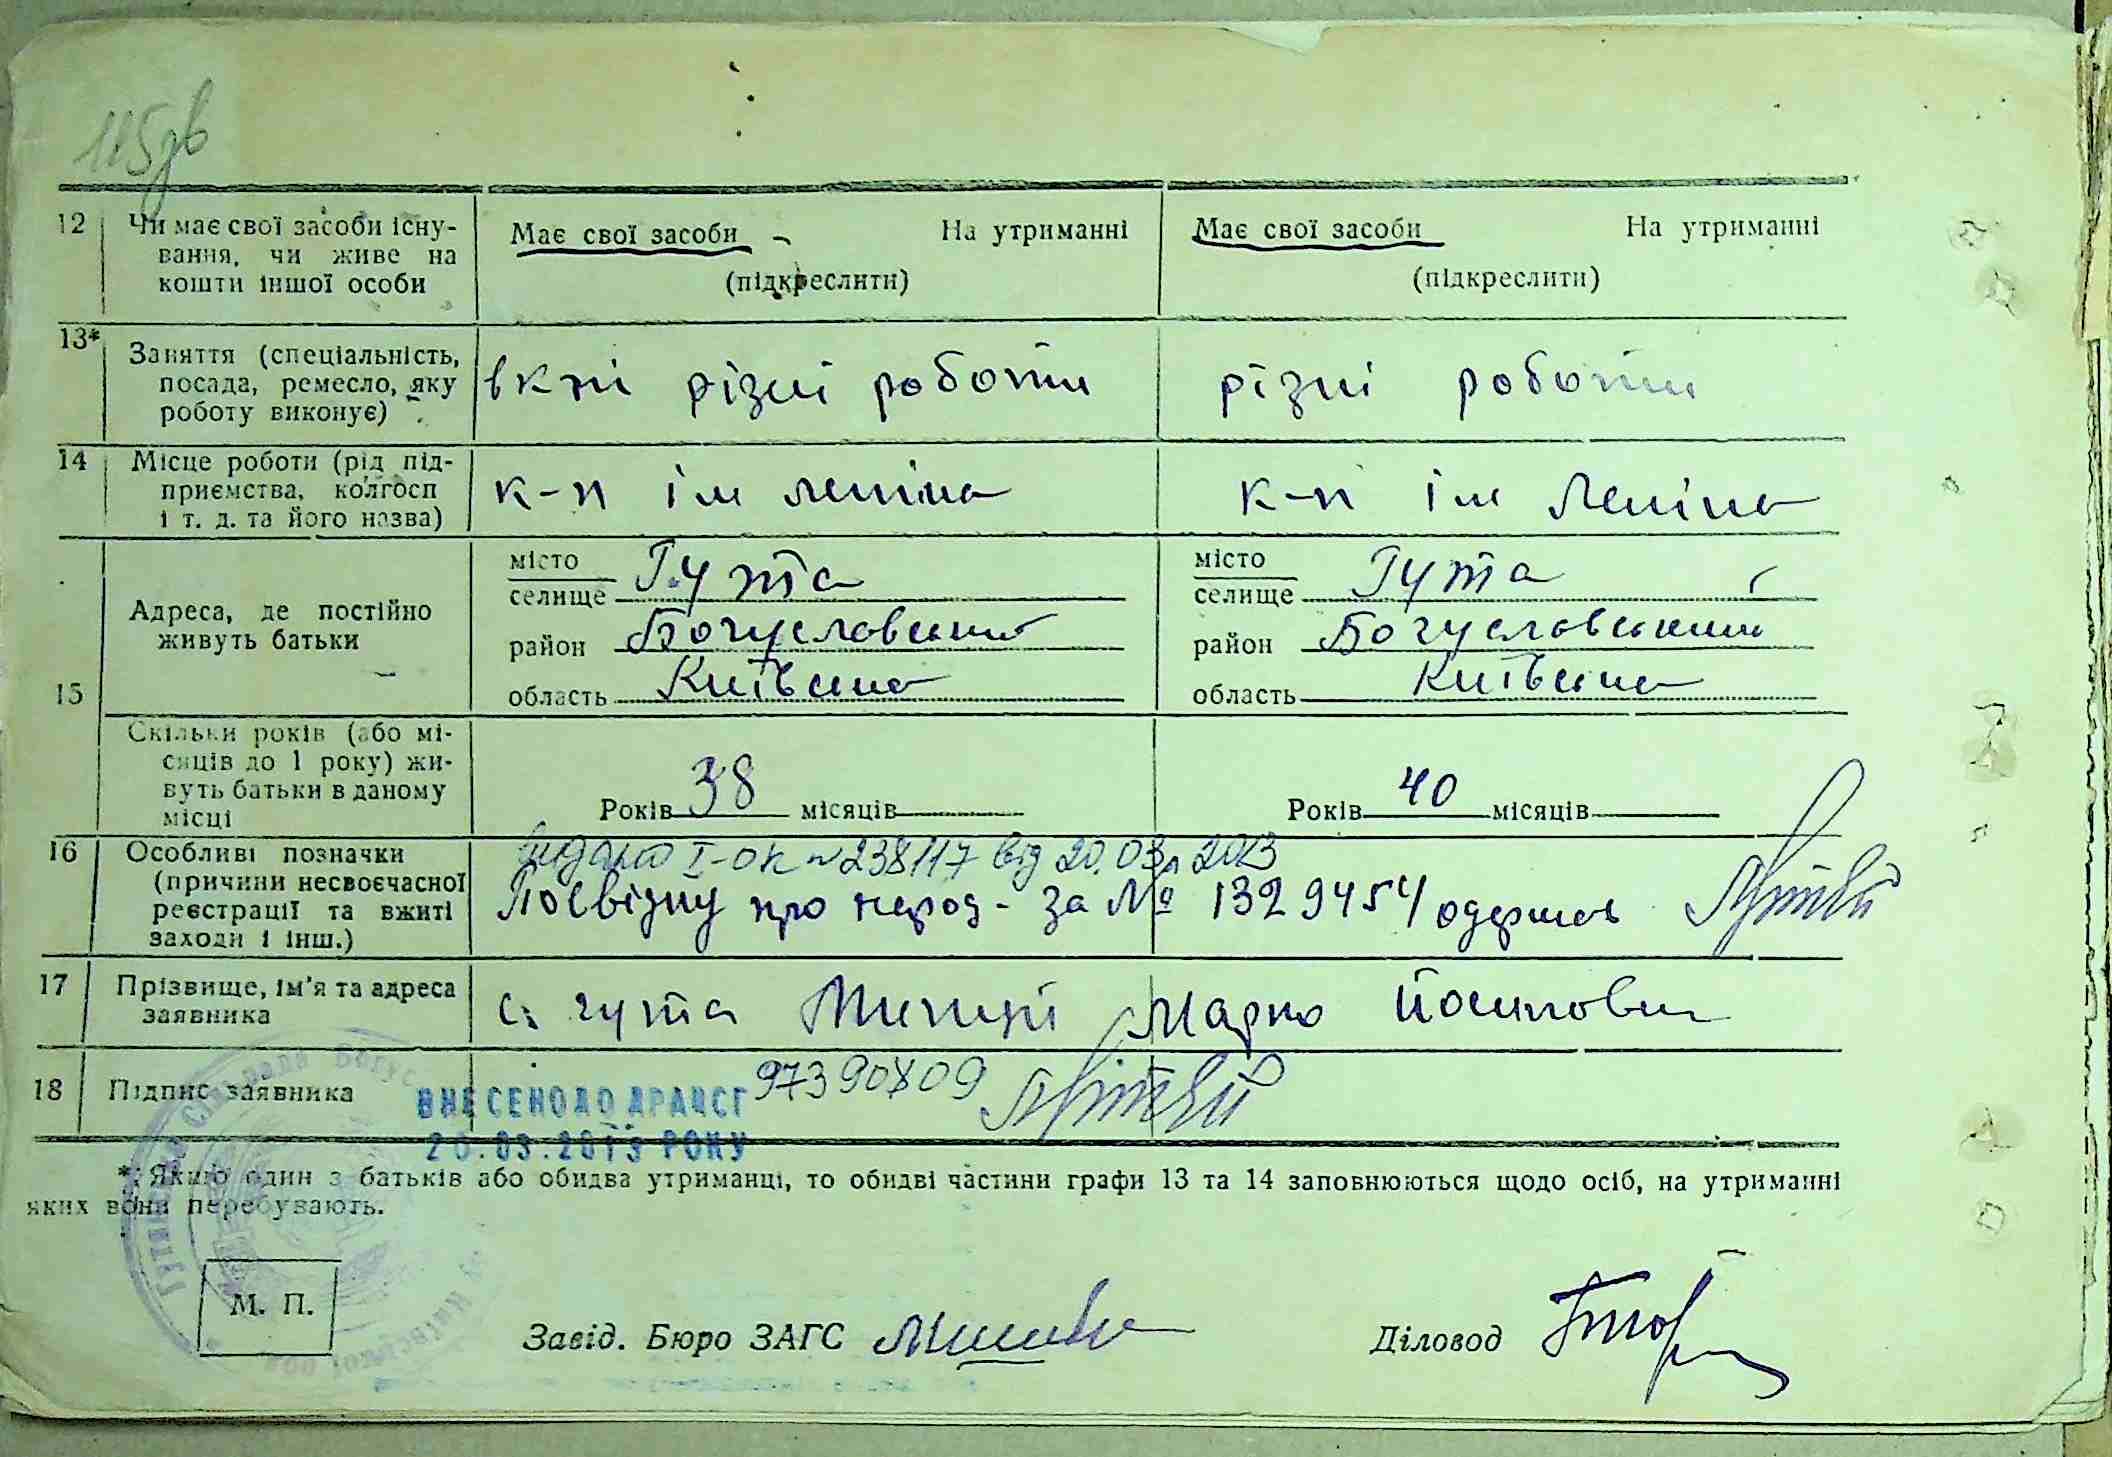 115зв
12 Чи має свої засоби існу- Має свої засоби На утриманні Має свої засоби На утриманні
вання, чи живе на
кошти іншої особи (підкреслити) (підкреслити)
13* Заняття (спеціальність,
посада, ремесло, яку в кпі різні роботи різні роботи
роботу виконує)
14 Місце роботи (рід під-
приємства, колгосп к-п ім Леніна к-п ім Леніна
і т. д. та його назва)
місто Гута місто Гута
селище селище
Адреса, де постійно район Богуславський район Богуславський
живуть батьки
15 область Київська область Київська
Скільки років (або мі-
сяців до 1 року) жи-
вуть батьки в даному Років 38 місяців Років 40 місяців
місці
16 Особливі позначки видано І-ОК №238117 від 20.03.2013
(причини несвоєчасної
реєстрації та вжиті Посвідку про народ- за № 1329454 одержав
заходи і інш.)
17 Прізвище, ім'я та адреса с. Гута Марко Йосипович
заявника
18 Підпис заявника 97390809
ВНЕСЕНО ДО ДРАЦСГ
20.03.2013 РОКУ
* Якщо один з батьків або обидва утриманці, то обидві частини графи 13 та 14 заповнюються щодо осіб, на утриманні
яких вони перебувають.
М. П.
Завід. Бюро ЗАГС Діловод